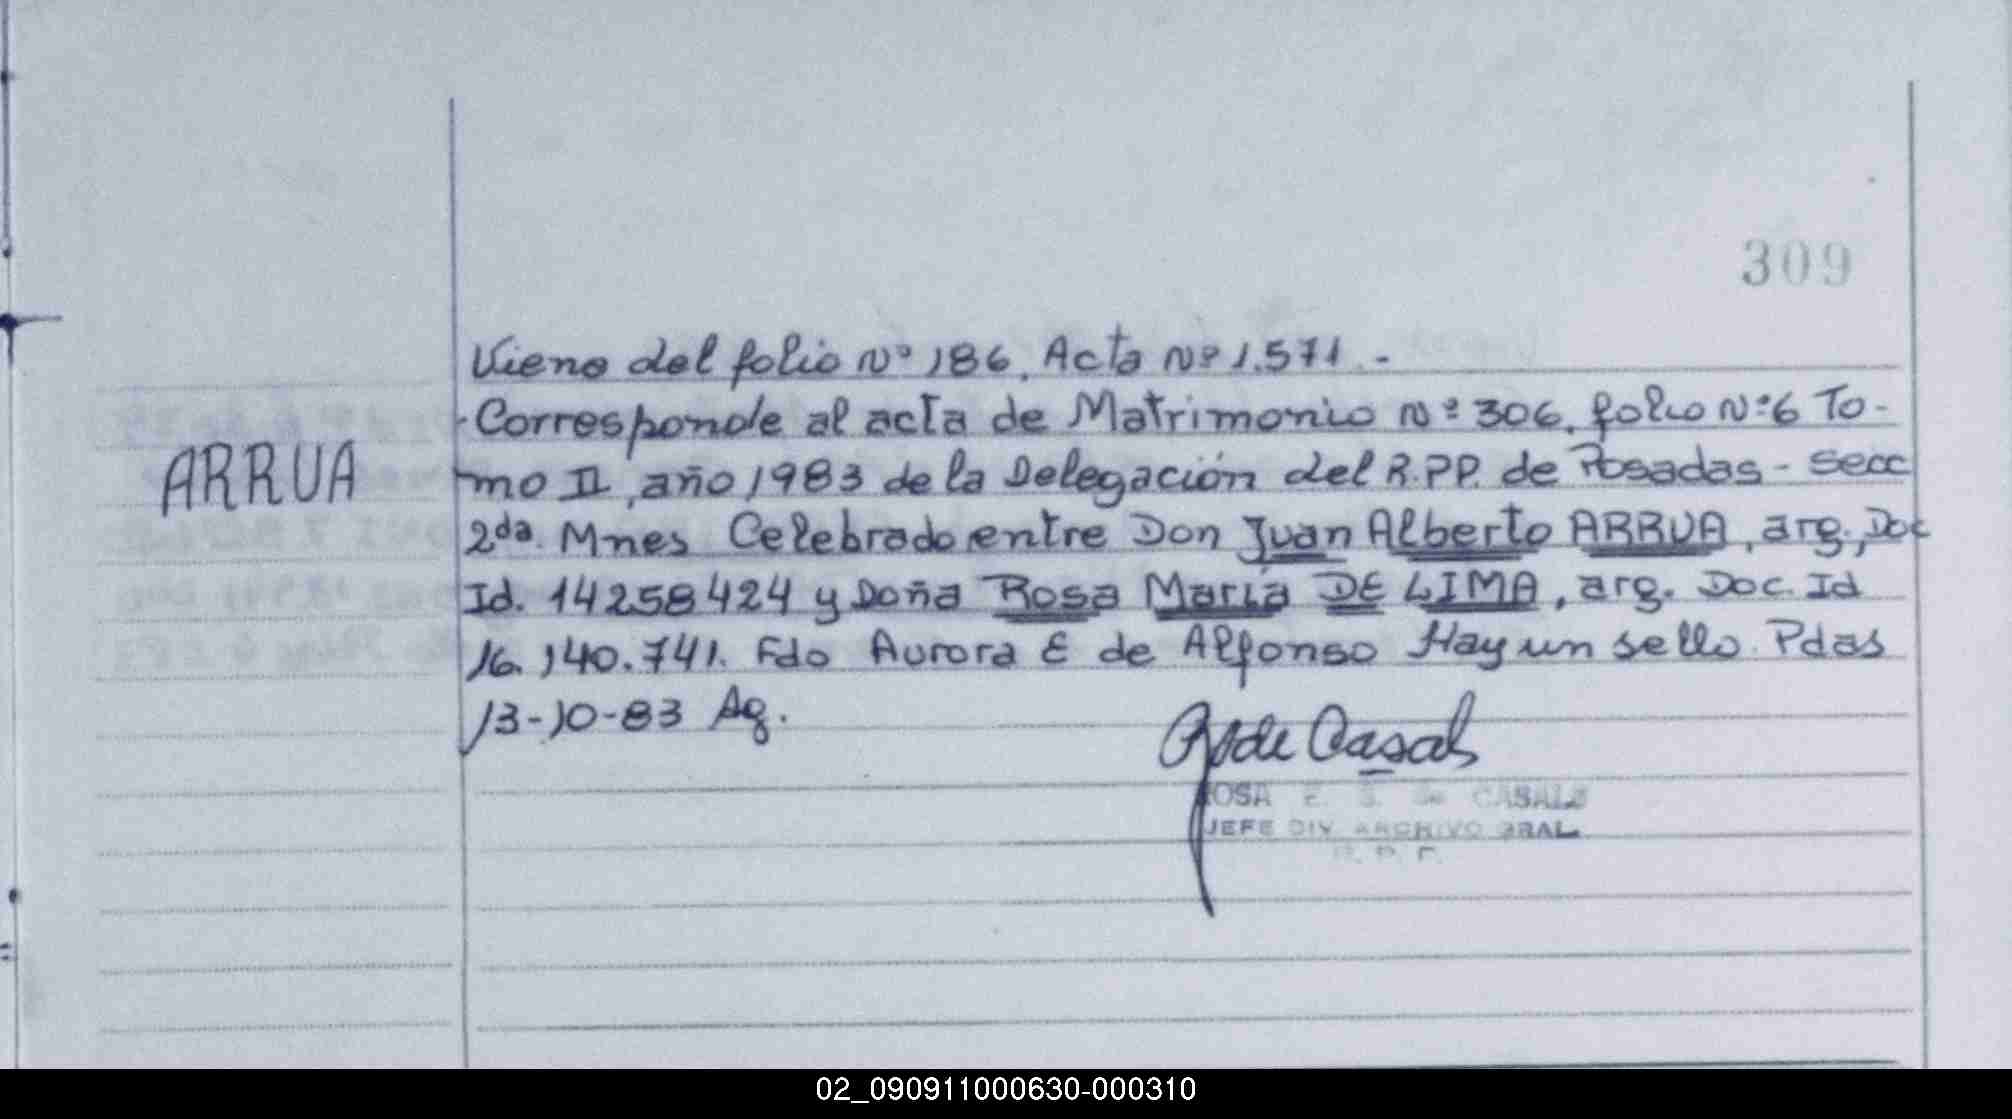 309
Viene del folio Nº 186. Acta Nº 1.571.-
Corresponde al acta de Matrimonio Nº 306, folio Nº 6 To-
ARRUA
mo II, año 1983 de la Delegación del R.PP. de Posadas - secc
2da. Mnes Celebrado entre Don Juan Alberto ARRUA, arg., Doc
Id. 14258424 y Doña Rosa María DE LIMA, arg. Doc. Id
16.140.741. Fdo Aurora E de Alfonso Hay un sello. Pdas
13-10-83 Ag.
de Casals
ROSA E. S. de CASALS
JEFE DIV. ARCHIVO GRAL
R. P. P.
02_090911000630-000310